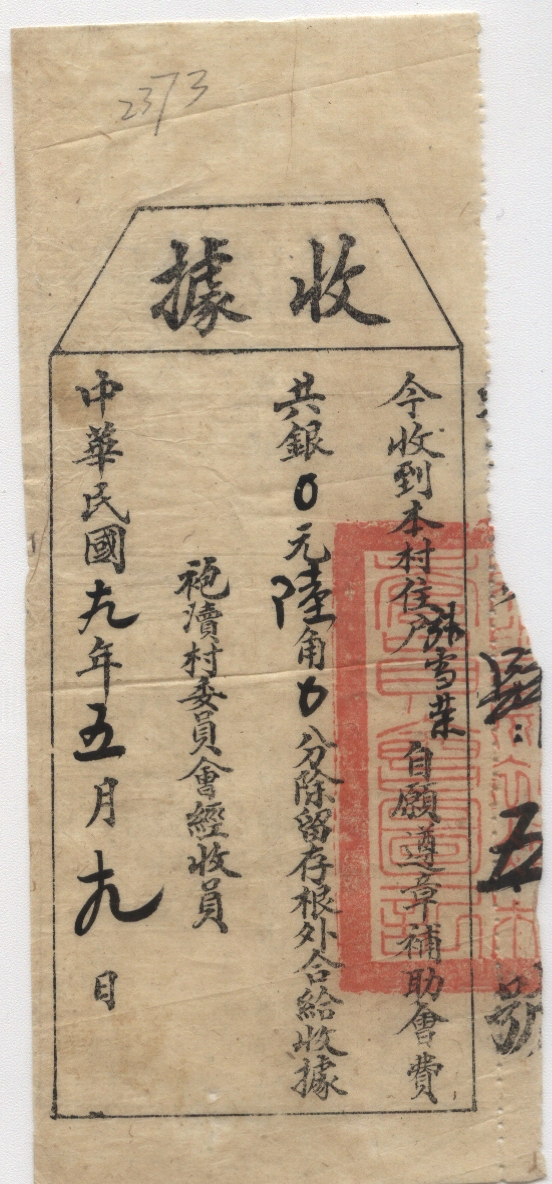 2373
收據
五號
今收到本村住戶孫雪荣自願遵章補助會費
共銀0元陸角0分除留存根外合給收據
袍瀆村委員會經收員
中華民國十九年五月十九日